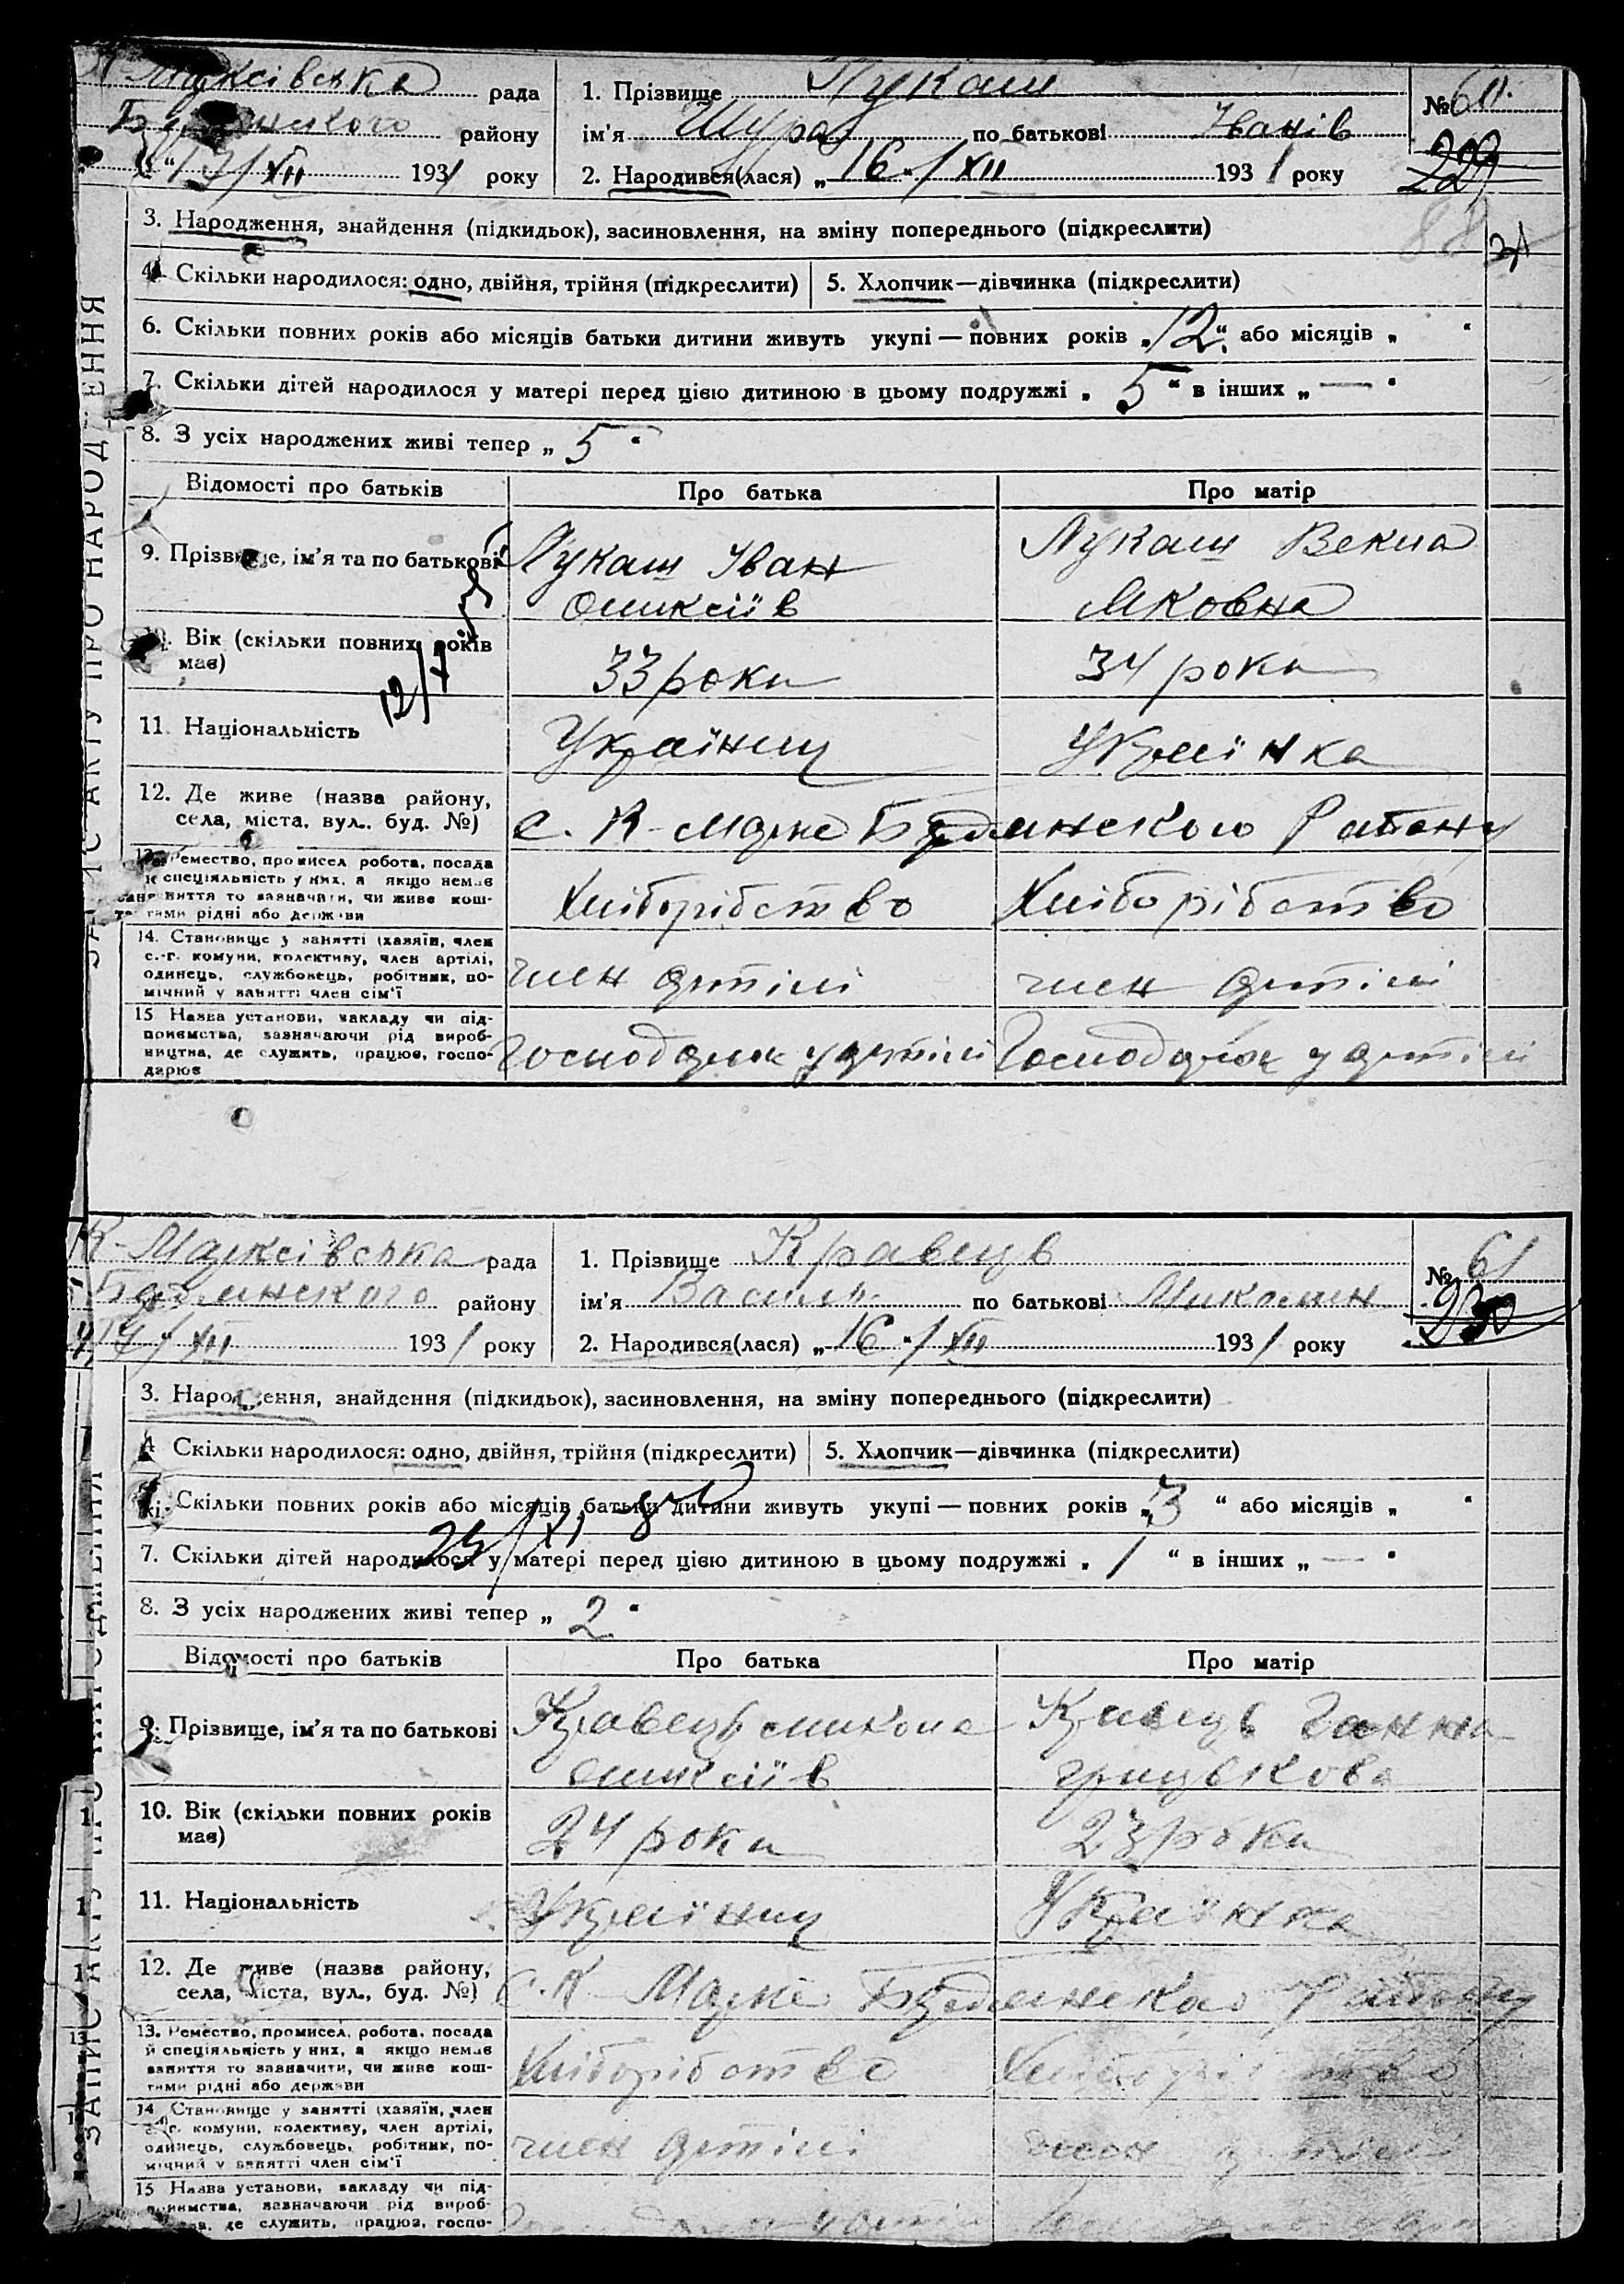 Марксівська рада
району
17/XII 1931 року
1. Прізвище Лукаш
ім'я Шура по батькові Іванів
2. Народився(лася) „16“/XII 1931 року
№ 60.
229
ЗАПИС АКТУ ПРО НАРОДЖЕННЯ
3. Народження, знайдення (підкидьок), засиновлення, на зміну попереднього (підкреслити)
88
4. Скільки народилося: одно, двійня, трійня (підкреслити) 5. Хлопчик—дівчинка (підкреслити)
6. Скільки повних років або місяців батьки дитини живуть укупі — повних років „12“ або місяців „ “
7. Скільки дітей народилося у матері перед цією дитиною в цьому подружжі „5“ в інших „—“
8. З усіх народжених живі тепер „5“
Відомості про батьків Про батька Про матір
9. Прізвище, ім'я та по батькові Лукаш Іван Лукаш Векла
Оликсіїв Яковна
10. Вік (скільки повних років має) 33 роки 34 роки
12/
11. Національність Українець Українка
12. Де живе (назва району, села, міста, вул., буд. №) с. К-Маркс Будянского Району
13. Ремество, промисел робота, посада
й спеціяльність у них, а якщо немає
заняття то зазначити, чи живе кош-
тами рідні або держави
Хліборібство Хліборібство
14. Становище у занятті (хазяїн, член
с.-г. комуни, колективу, член артілі,
одинець, службовець, робітник, по-
мічний у занятті член сім'ї
член артілі член артілі
15 Назва установи, закладу чи під-
приємства, зазначаючи рід вироб-
ництва, де служить, працює, госпо-
дарює
Господарює у артілі Господарює у артілі
К-Марксівська рада
Будянского району
17/XII 1931 року
1. Прізвище Кравець
ім'я Василь по батькові Миколин
2. Народився(лася) „16“/XII 1931 року
№ 61
230
ЗАПИС АКТУ ПРО НАРОДЖЕННЯ
3. Народження, знайдення (підкидьок), засиновлення, на зміну попереднього (підкреслити)
4 Скільки народилося: одно, двійня, трійня (підкреслити) 5. Хлопчик—дівчинка (підкреслити)
Скільки повних років або місяців батьки дитини живуть укупі — повних років „3“ або місяців „ “
7. Скільки дітей народилося у матері перед цією дитиною в цьому подружжі „1“ в інших „—“
8. З усіх народжених живі тепер „2“
Відомості про батьків Про батька Про матір
9. Прізвище, ім'я та по батькові Кравець Микола Кравець Ганна
Оликсіїв Грицькова
10. Вік (скільки повних років має) 24 роки 23 роки
11. Національність Українець Українка
12. Де живе (назва району, села, міста, вул., буд. №) с. К-Маркс Будянского Району
13. Ремество, промисел, робота, посада
й спеціяльність у них, а якщо немає
заняття то зазначити, чи живе кош-
тами рідні або держави
Хліборібство Хліборібство
14 Становище у занятті (хазяїн, член
с.-г. комуни, колективу, член артілі,
одинець, службовець, робітник, по-
мічний у занятті член сім'ї
член артілі член артілі
15 Назва установи, закладу чи під-
приємства, зазначаючи рід вироб-
де служить, працює, госпо-